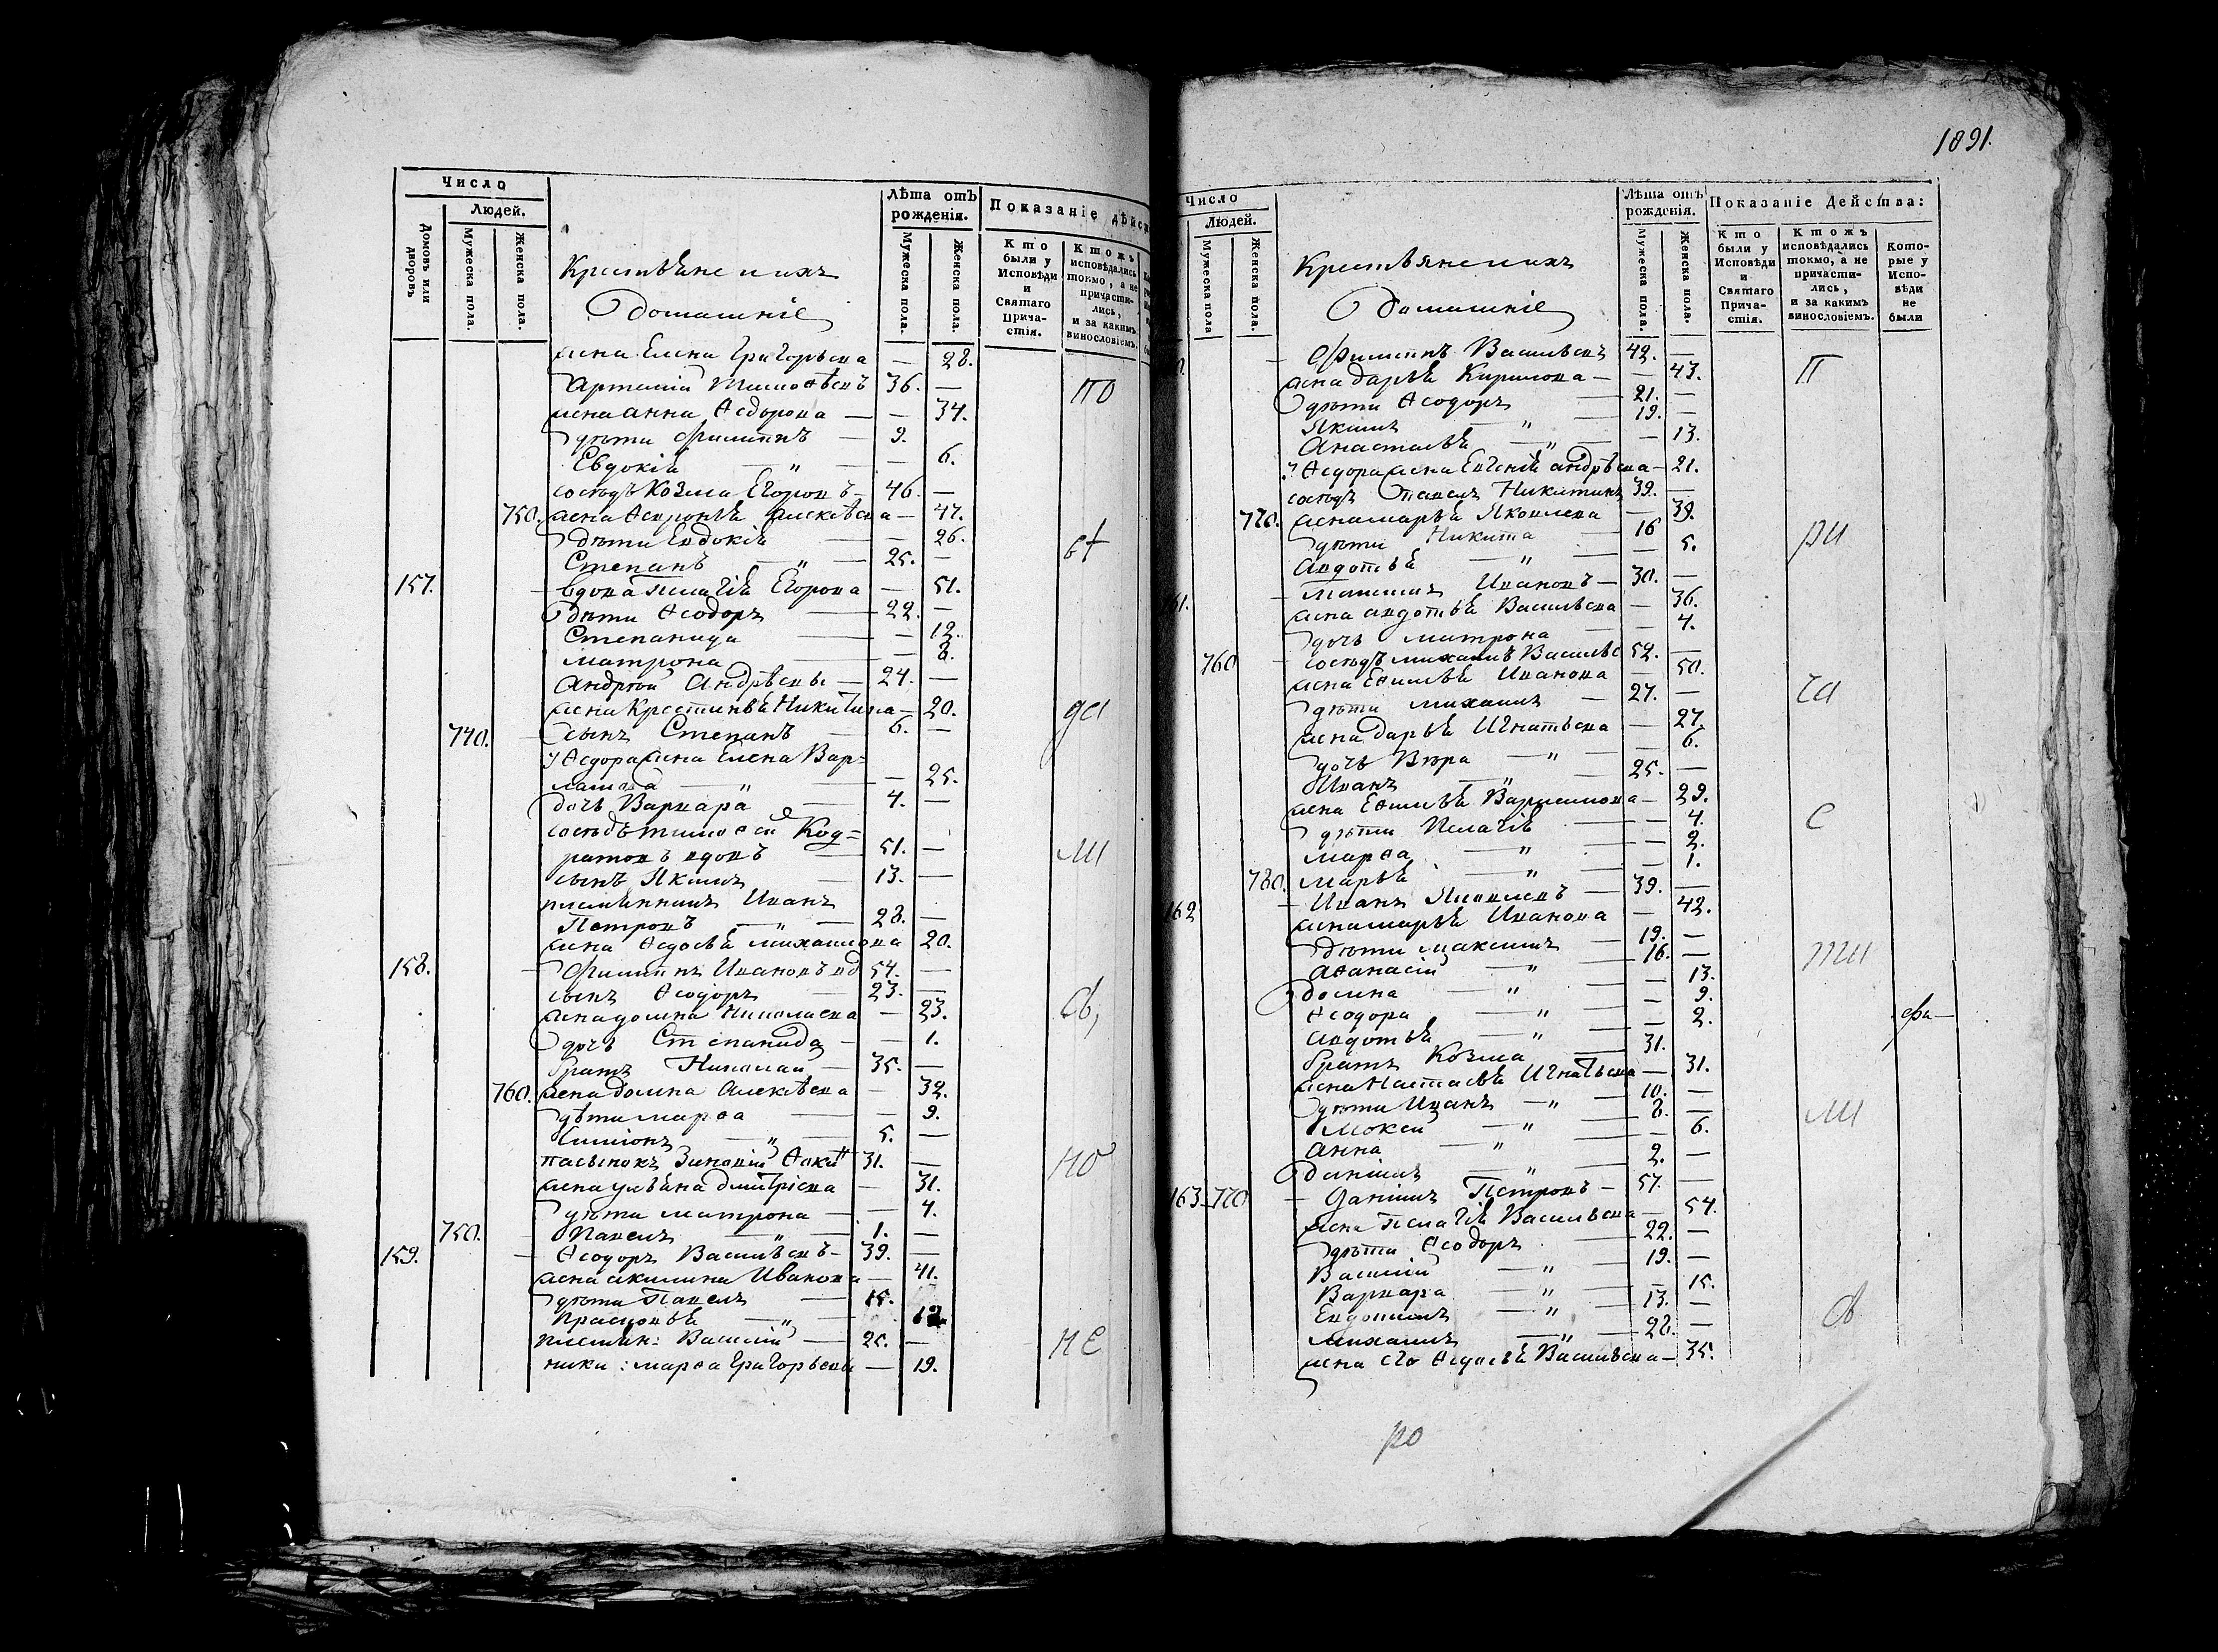 Число
Людей.
Домовъ или дворовъ
Мужеска пола.
Женска пола.
Крестьяне и ихъ
Домашніе
Лѣта отъ рожденія.
Мужеска пола.
Женска пола.
Показаніе дѣйс
Кто были у Исповѣди и Святаго Прича-стія.
Ктожъ исповѣдались токмо, а не причасти-лись, и за какимъ винословіемъ.
жена Елена Григорьева — 28.
Артемій Тимоѳѣевъ 36. —
жена Анна Ѳедорова — 34.
дѣти Филиппъ 9.
Евдокія — " — 6.
сосѣдъ Козма Егоровъ 46. —
750. жена Ѳевронья Алексѣева — 47.
дѣти Евдокія — 26.
Степанъ — " — 25. —
157. вдова Пелагія Егорова — 51.
дѣти Ѳеодоръ 22. —
Степанида — 12.
Матрона — 8.
Андрей Андрѣевъ 24. —
жена Крестинья Никитина — 20.
740. сынъ Степанъ 6. —
у Ѳедора жена Елена Вар=
ламова — " — 25.
дочь Варвара 4. —
сосѣдъ Тимоѳей Код=
ратовъ вдовъ 51. —
сынъ Якимъ 13. —
племянникъ Иванъ
Петровъ — " — 28. —
жена Ѳедосья Михайлова 20.
158. Филиппъ Ивановъ вд 54. —
сынъ Ѳеодоръ 23. —
жена Домна Николаева — 23.
дочь Степанида — 1.
братъ Николай 35. —
760. жена Домна Алексѣева — 32.
дѣти Марѳа — 9.
Симіонъ — " — 5. —
пасынокъ Зиновій 31. —
жена Ульяна Дмитріева — 31.
дѣти Матрона — 4.
750. Павелъ — " — 1. —
159. Ѳеодоръ Васильевъ 39. —
жена Акилина Иванова — 41.
дѣти Павелъ 15.
Прасковья — " —
племян: Василій 25. —
ники: Марѳа Григорьевы — 19.
по
да
ми
св,
но
не
1891.
Число
Людей.
Мужеска пола
Женска пола.
Крестьяне и ихъ
Домашніе
Лѣта отъ рожденія.
Мужеска пола.
Женска пола.
Показаніе Действа:
Кто были у Исповѣди и Святаго Прича-стія.
Ктожъ исповѣдались токмо, а не причасти-лись, и за какимъ винословіемъ.
Кото-рые у Испо-вѣди не были
Филиппъ Васильевъ 42. —
жена Дарья Кирилова — 43.
дѣти Ѳеодоръ 21. —
Якимъ — " 19. —
Анастасья — " — 13.
у Ѳедора жена Евгенія Андрѣева — 21.
сосѣдъ Павелъ Никитинъ 39. —
770. жена Марья Яковлева — 39.
дѣти Никита 16
Авдотья — " — 5.
Ивановъ 30. —
жена Авдотья Васильева — 36.
дочь Матрона — 4.
760 сосѣдъ Михаилъ Васильев 52. —
жена Еѳимья Иванова — 50.
дѣти Михаилъ 27. —
жена Дарья Игнатьева — 27.
дочь Вѣра — " — 6.
Иванъ — " — 25. —
жена Еѳимья — 29.
дѣти Пелагія — 4.
Марѳа — " — 2.
780. Марья — " — 1.
162 Иванъ Яковлевъ 39. —
жена Марья Иванова — 42.
дѣти Максимъ 19. —
Аѳанасій — " 16. —
Домна — " — 13.
Ѳеодора — " — 9.
Авдотья — " — 2.
братъ Козма 31.
жена Настасья Игнатьева — 31.
дѣти Иванъ — " — 10. —
Мокей — " — 8. —
Анна — " — 6.
Данилъ — " — 2. —
163 770 Данилъ Петровъ 57. —
жена Пелагія Васильева — 54.
дѣти Ѳеодоръ 22. —
Василій — " — 19. —
Варвара — " — 15.
Евдокимъ — " — 13. —
Михаилъ — " — 28. —
жена его Ѳедосья Васильева — 35.
п
ри
ча
с
ти
ли
св
ро